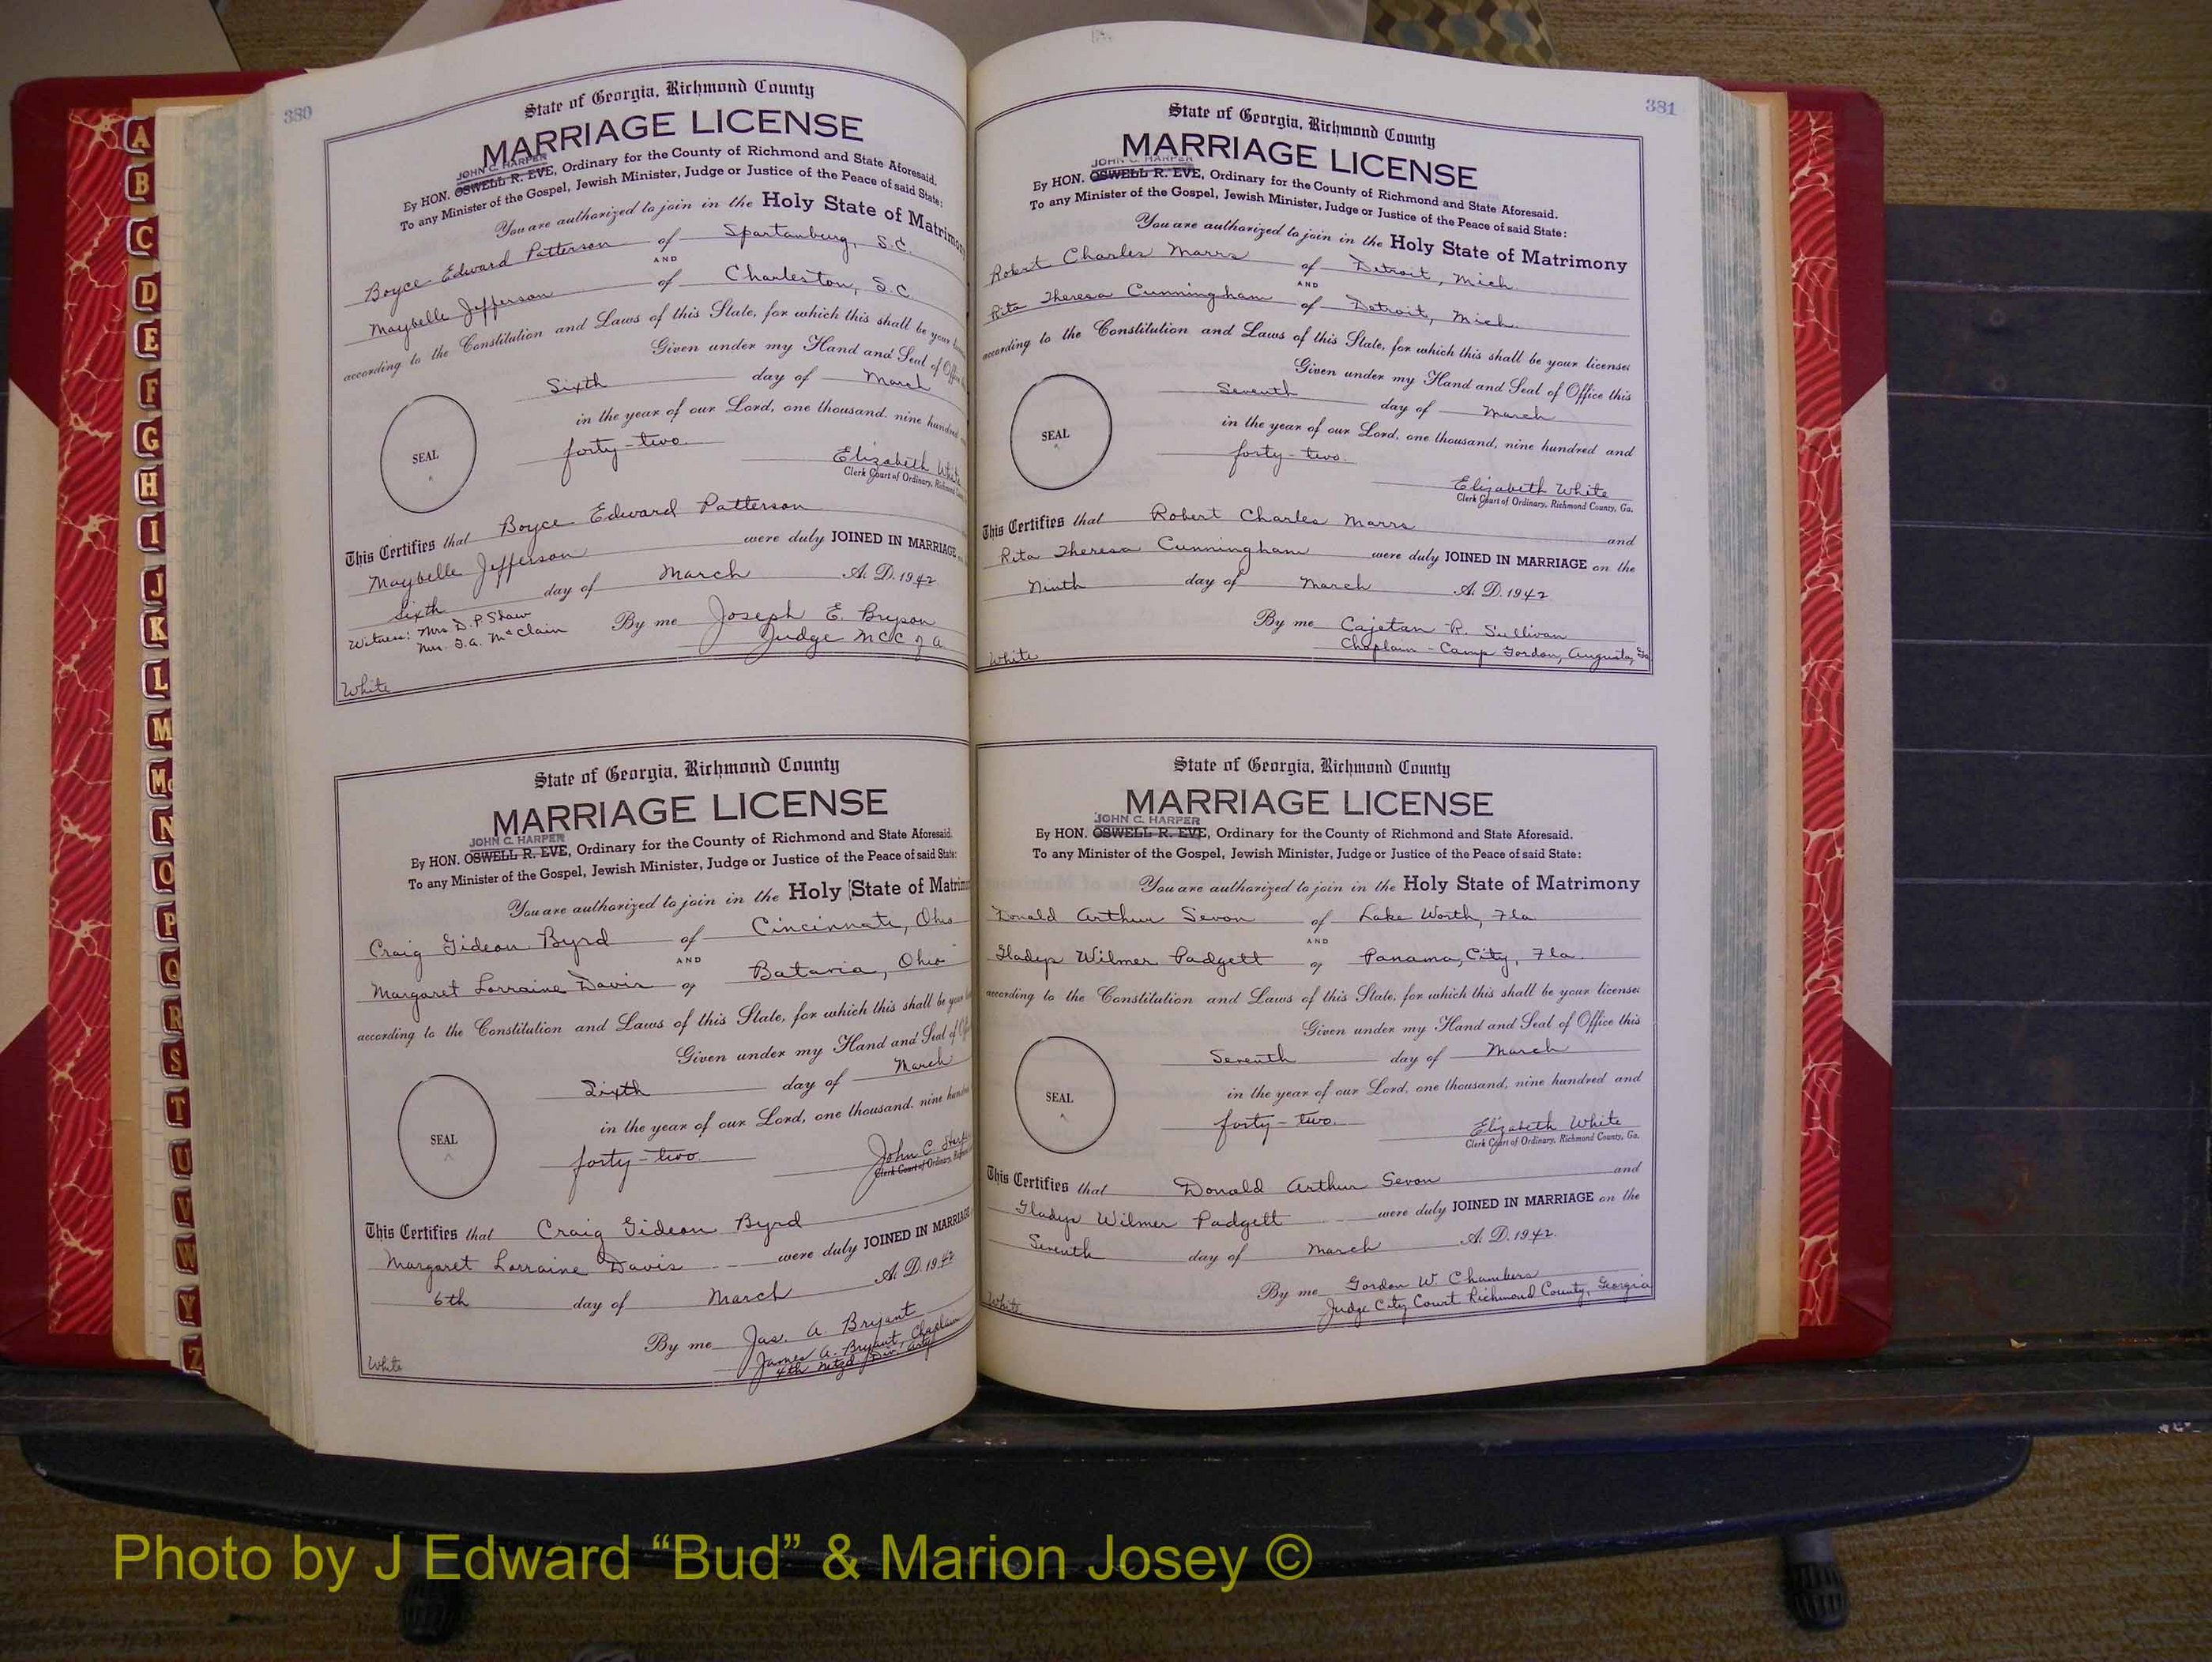 380
State of Georgia, Richmond County
MARRIAGE LICENSE
JOHN C. HARPER
By HON. OSWELL R. EVE, Ordinary for the County of Richmond and State Aforesaid.
To any Minister of the Gospel, Jewish Minister, Judge or Justice of the Peace of said State:
You are authorized to join in the Holy State of Matrimony
Boyce Edward Patterson of Spartanburg, S.C.
AND
Maybelle Jefferson of Charleston, S.C.
according to the Constitution and Laws of this State, for which this shall be your
Given under my Hand and Seal of
Sixth day of March
in the year of our Lord, one thousand, nine hundred
forty-two
SEAL
Elizabeth White
Clerk Court of Ordinary,
This Certifies that Boyce Edward Patterson
Maybelle Jefferson were duly JOINED IN MARRIAGE
Sixth day of March A. D. 1942
Witness: Mrs D. P. Shaw
McClain
By me Joseph E. Bryson
Judge
White
State of Georgia, Richmond County
MARRIAGE LICENSE
JOHN C. HARPER
By HON. OSWELL R. EVE, Ordinary for the County of Richmond and State Aforesaid.
To any Minister of the Gospel, Jewish Minister, Judge or Justice of the Peace of said State:
You are authorized to join in the Holy State of
Craig Gideon Byrd of Cincinnati, Ohio
AND
Margaret Lorraine Davis of Batavia, Ohio
according to the Constitution and Laws of this State, for which this shall be
Given under my Hand and Seal of
Sixth day of March
in the year of our Lord, one thousand, nine
forty-two
SEAL
John C.
Clerk Court of Ordinary,
This Certifies that Craig Gideon Byrd
Margaret Lorraine Davis were duly JOINED IN MARRIAGE
6th day of March A. D. 1942
By me Jas. A. Bryant
James A. Bryant, Chaplain
4th Div.
White
381
State of Georgia, Richmond County
MARRIAGE LICENSE
JOHN C. HARPER
By HON. OSWELL R. EVE, Ordinary for the County of Richmond and State Aforesaid.
To any Minister of the Gospel, Jewish Minister, Judge or Justice of the Peace of said State:
You are authorized to join in the Holy State of Matrimony
Robert Charles Marrs of Detroit, Mich.
AND
Rita Theresa Cunningham of Detroit, Mich.
according to the Constitution and Laws of this State, for which this shall be your license:
Given under my Hand and Seal of Office this
Seventh day of March
in the year of our Lord, one thousand, nine hundred and
forty-two.
SEAL
Elizabeth White
Clerk Court of Ordinary, Richmond County, Ga.
This Certifies that Robert Charles Marrs and
Rita Theresa Cunningham were duly JOINED IN MARRIAGE on the
Ninth day of March A. D. 1942
By me Cajetan R. Sullivan
Chaplain - Camp Gordon, Augusta, Ga
White
State of Georgia, Richmond County
MARRIAGE LICENSE
JOHN C. HARPER
By HON. OSWELL R. EVE, Ordinary for the County of Richmond and State Aforesaid.
To any Minister of the Gospel, Jewish Minister, Judge or Justice of the Peace of said State:
You are authorized to join in the Holy State of Matrimony
Donald Arthur Sevon of Lake Worth, Fla
AND
Gladys Wilmer Padgett of Panama, City, Fla.
according to the Constitution and Laws of this State, for which this shall be your license:
Given under my Hand and Seal of Office this
Seventh day of March
in the year of our Lord, one thousand, nine hundred and
forty-two.
SEAL
Elizabeth White
Clerk Court of Ordinary, Richmond County, Ga.
This Certifies that Donald Arthur Sevon and
Gladys Wilmer Padgett were duly JOINED IN MARRIAGE on the
Seventh day of March A. D. 1942.
By me Gordon W. Chambers
Judge City Court Richmond County, Georgia
White
A
B
C
D
E
F
G
H
I
J
K
L
M
Mc
N
O
P
Q
R
S
T
U
V
W
Y
Z
Photo by J Edward “Bud” & Marion Josey ©